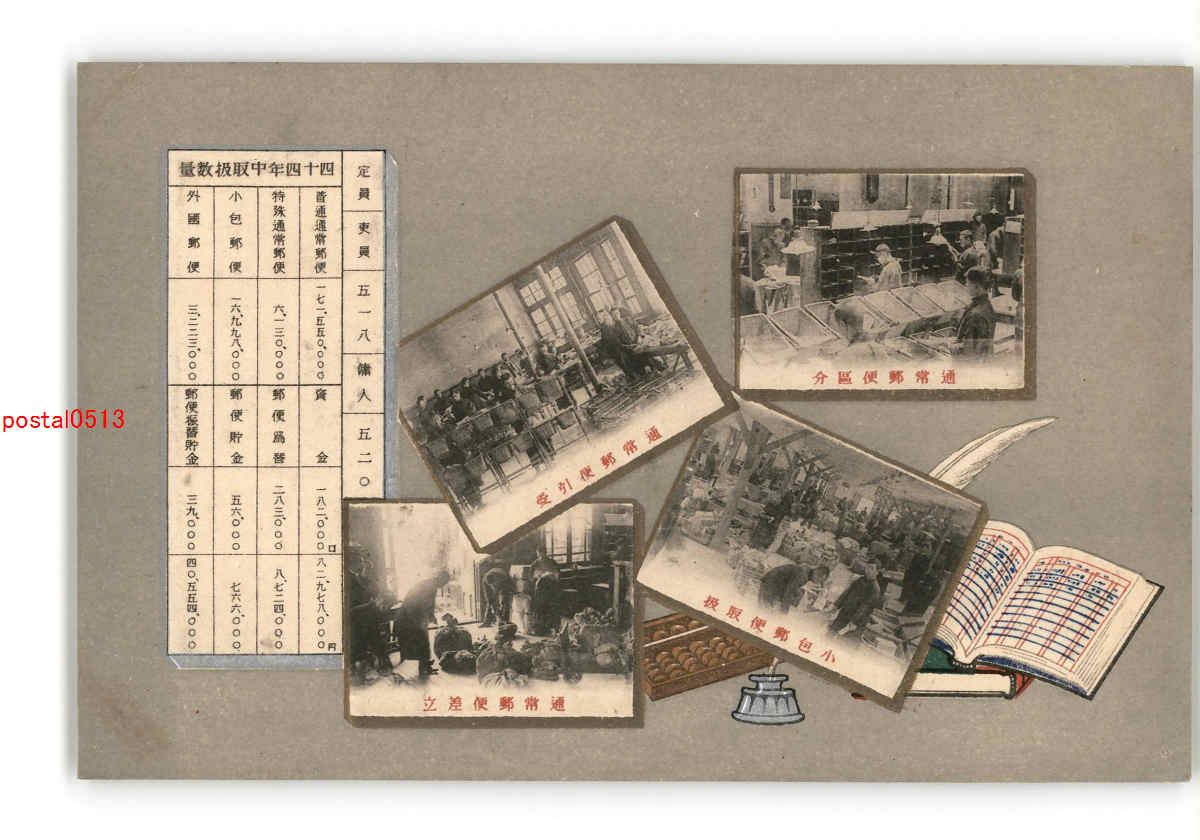 四十四年中取扱数量
定員
吏員
五一八
傭人
五二〇
普通通常郵便
一七一、五五〇、〇〇〇
特殊通常郵便
六、一三〇、〇〇〇
小包郵便
一六、九九八、〇〇〇
外國郵便
三、二二三、〇〇〇
資金
一八二、〇〇〇口
八二、九七八、〇〇〇円
郵便為替
二八三、〇〇〇
八、七二四、〇〇〇
郵便貯金
五六、〇〇〇
七六六、〇〇〇
郵便振替貯金
三九、〇〇〇
四〇、五五四、〇〇〇
通常郵便區分
通常郵便引受
小包郵便取扱
通常郵便差立
postal0513